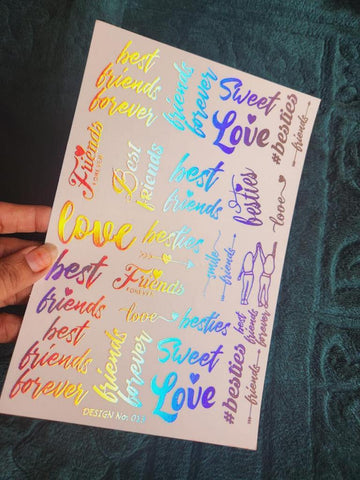 best
friends
forever
friends
forever
Sweet
Love
#besties
friends
Friends
FOREVER
Best
friends
best
friends
besties
love
love
besties
smile
friends
best
friends
Friends
FOREVER
love
besties
best
friends
forever
best
friends
forever
friends
forever
Sweet
Love
#besties
friends
DESIGN No: 033